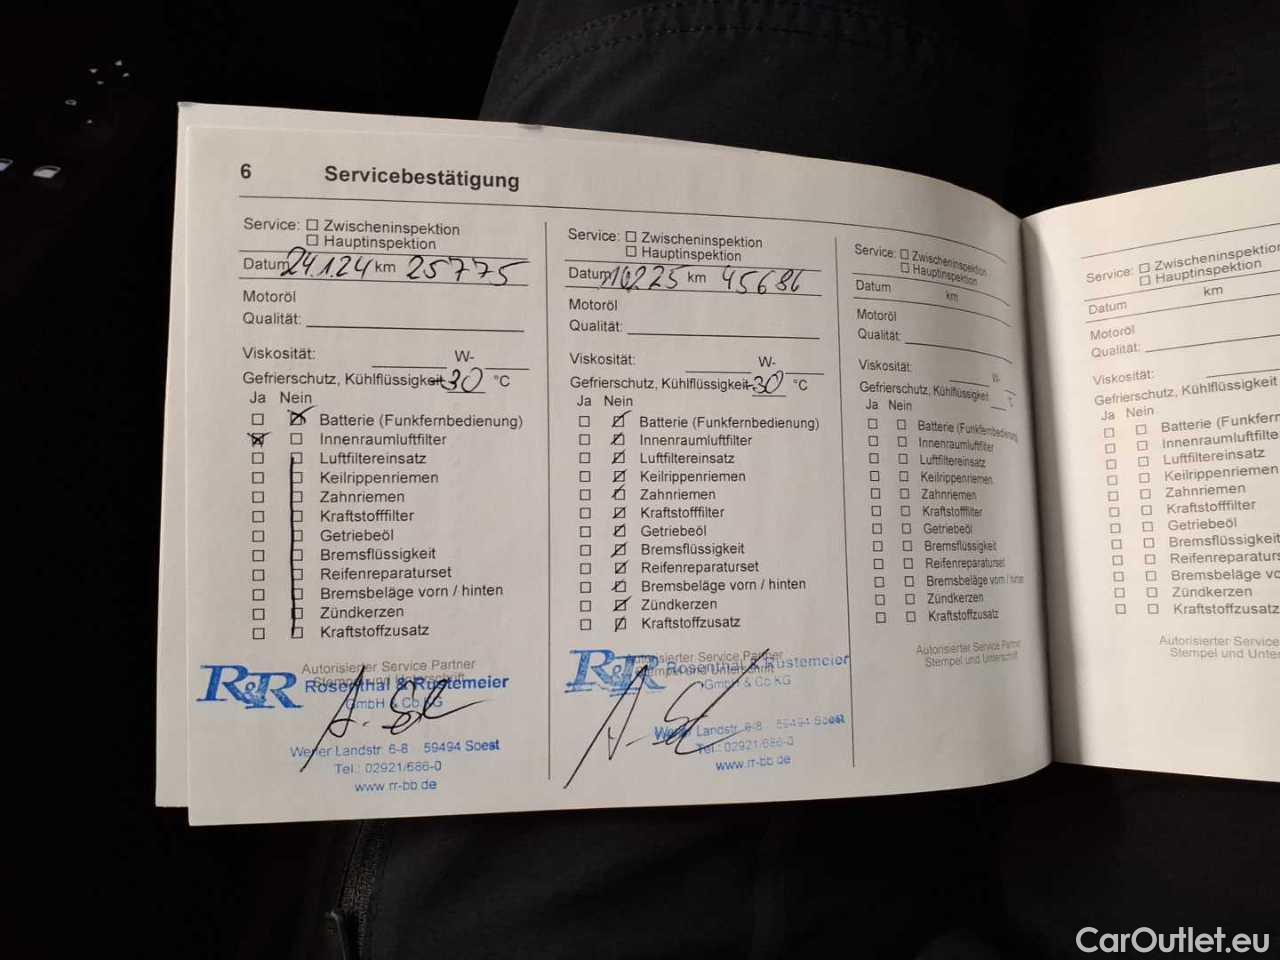 6 Servicebestätigung
Service: Zwischeninspektion
Hauptinspektion
Datum 24.1.24 km 25775
Motoröl
Qualität:
Viskosität: W-
Gefrierschutz, Kühlflüssigkeit -30 °C
Ja Nein
Batterie (Funkfernbedienung)
Innenraumluftfilter
Luftfiltereinsatz
Keilrippenriemen
Zahnriemen
Kraftstofffilter
Getriebeöl
Bremsflüssigkeit
Reifenreparaturset
Bremsbeläge vorn / hinten
Zündkerzen
Kraftstoffzusatz
Autorisierter Service Partner
Stempel und Unterschrift
R&R Rosenthal & Rüstemeier
GmbH & Co KG
Werler Landstr. 6-8 59494 Soest
Tel.: 02921/686-0
www.rr-bb.de
Service: Zwischeninspektion
Hauptinspektion
Datum km 45686
Motoröl
Qualität:
Viskosität: W-
Gefrierschutz, Kühlflüssigkeit -30 °C
Ja Nein
Batterie (Funkfernbedienung)
Innenraumluftfilter
Luftfiltereinsatz
Keilrippenriemen
Zahnriemen
Kraftstofffilter
Getriebeöl
Bremsflüssigkeit
Reifenreparaturset
Bremsbeläge vorn / hinten
Zündkerzen
Kraftstoffzusatz
Autorisierter Service Partner
Stempel und Unterschrift
R&R Rosenthal & Rüstemeier
GmbH & Co KG
Werler Landstr. 6-8 59494 Soest
Tel.: 02921/686-0
www.rr-bb.de
Service: Zwischeninspektion
Hauptinspektion
Datum km
Motoröl
Qualität:
Viskosität: W-
Gefrierschutz, Kühlflüssigkeit °C
Ja Nein
Batterie (Funkfernbedienung)
Innenraumluftfilter
Luftfiltereinsatz
Keilrippenriemen
Zahnriemen
Kraftstofffilter
Getriebeöl
Bremsflüssigkeit
Reifenreparaturset
Bremsbeläge vorn / hinten
Zündkerzen
Kraftstoffzusatz
Autorisierter Service Partner
Stempel und Unterschrift
Service: Zwischeninspektion
Hauptinspektion
Datum km
Motoröl
Qualität:
Viskosität:
Gefrierschutz, Kühlflüssigkeit
Ja Nein
Batterie (Funkfern
Innenraumluftfilte
Luftfiltereinsatz
Keilrippenriemen
Zahnriemen
Kraftstofffilter
Getriebeöl
Bremsflüssigkeit
Reifenreparaturs
Bremsbeläge vo
Zündkerzen
Kraftstoffzusatz
Autorisierter Service
Stempel und Unters
CarOutlet.eu